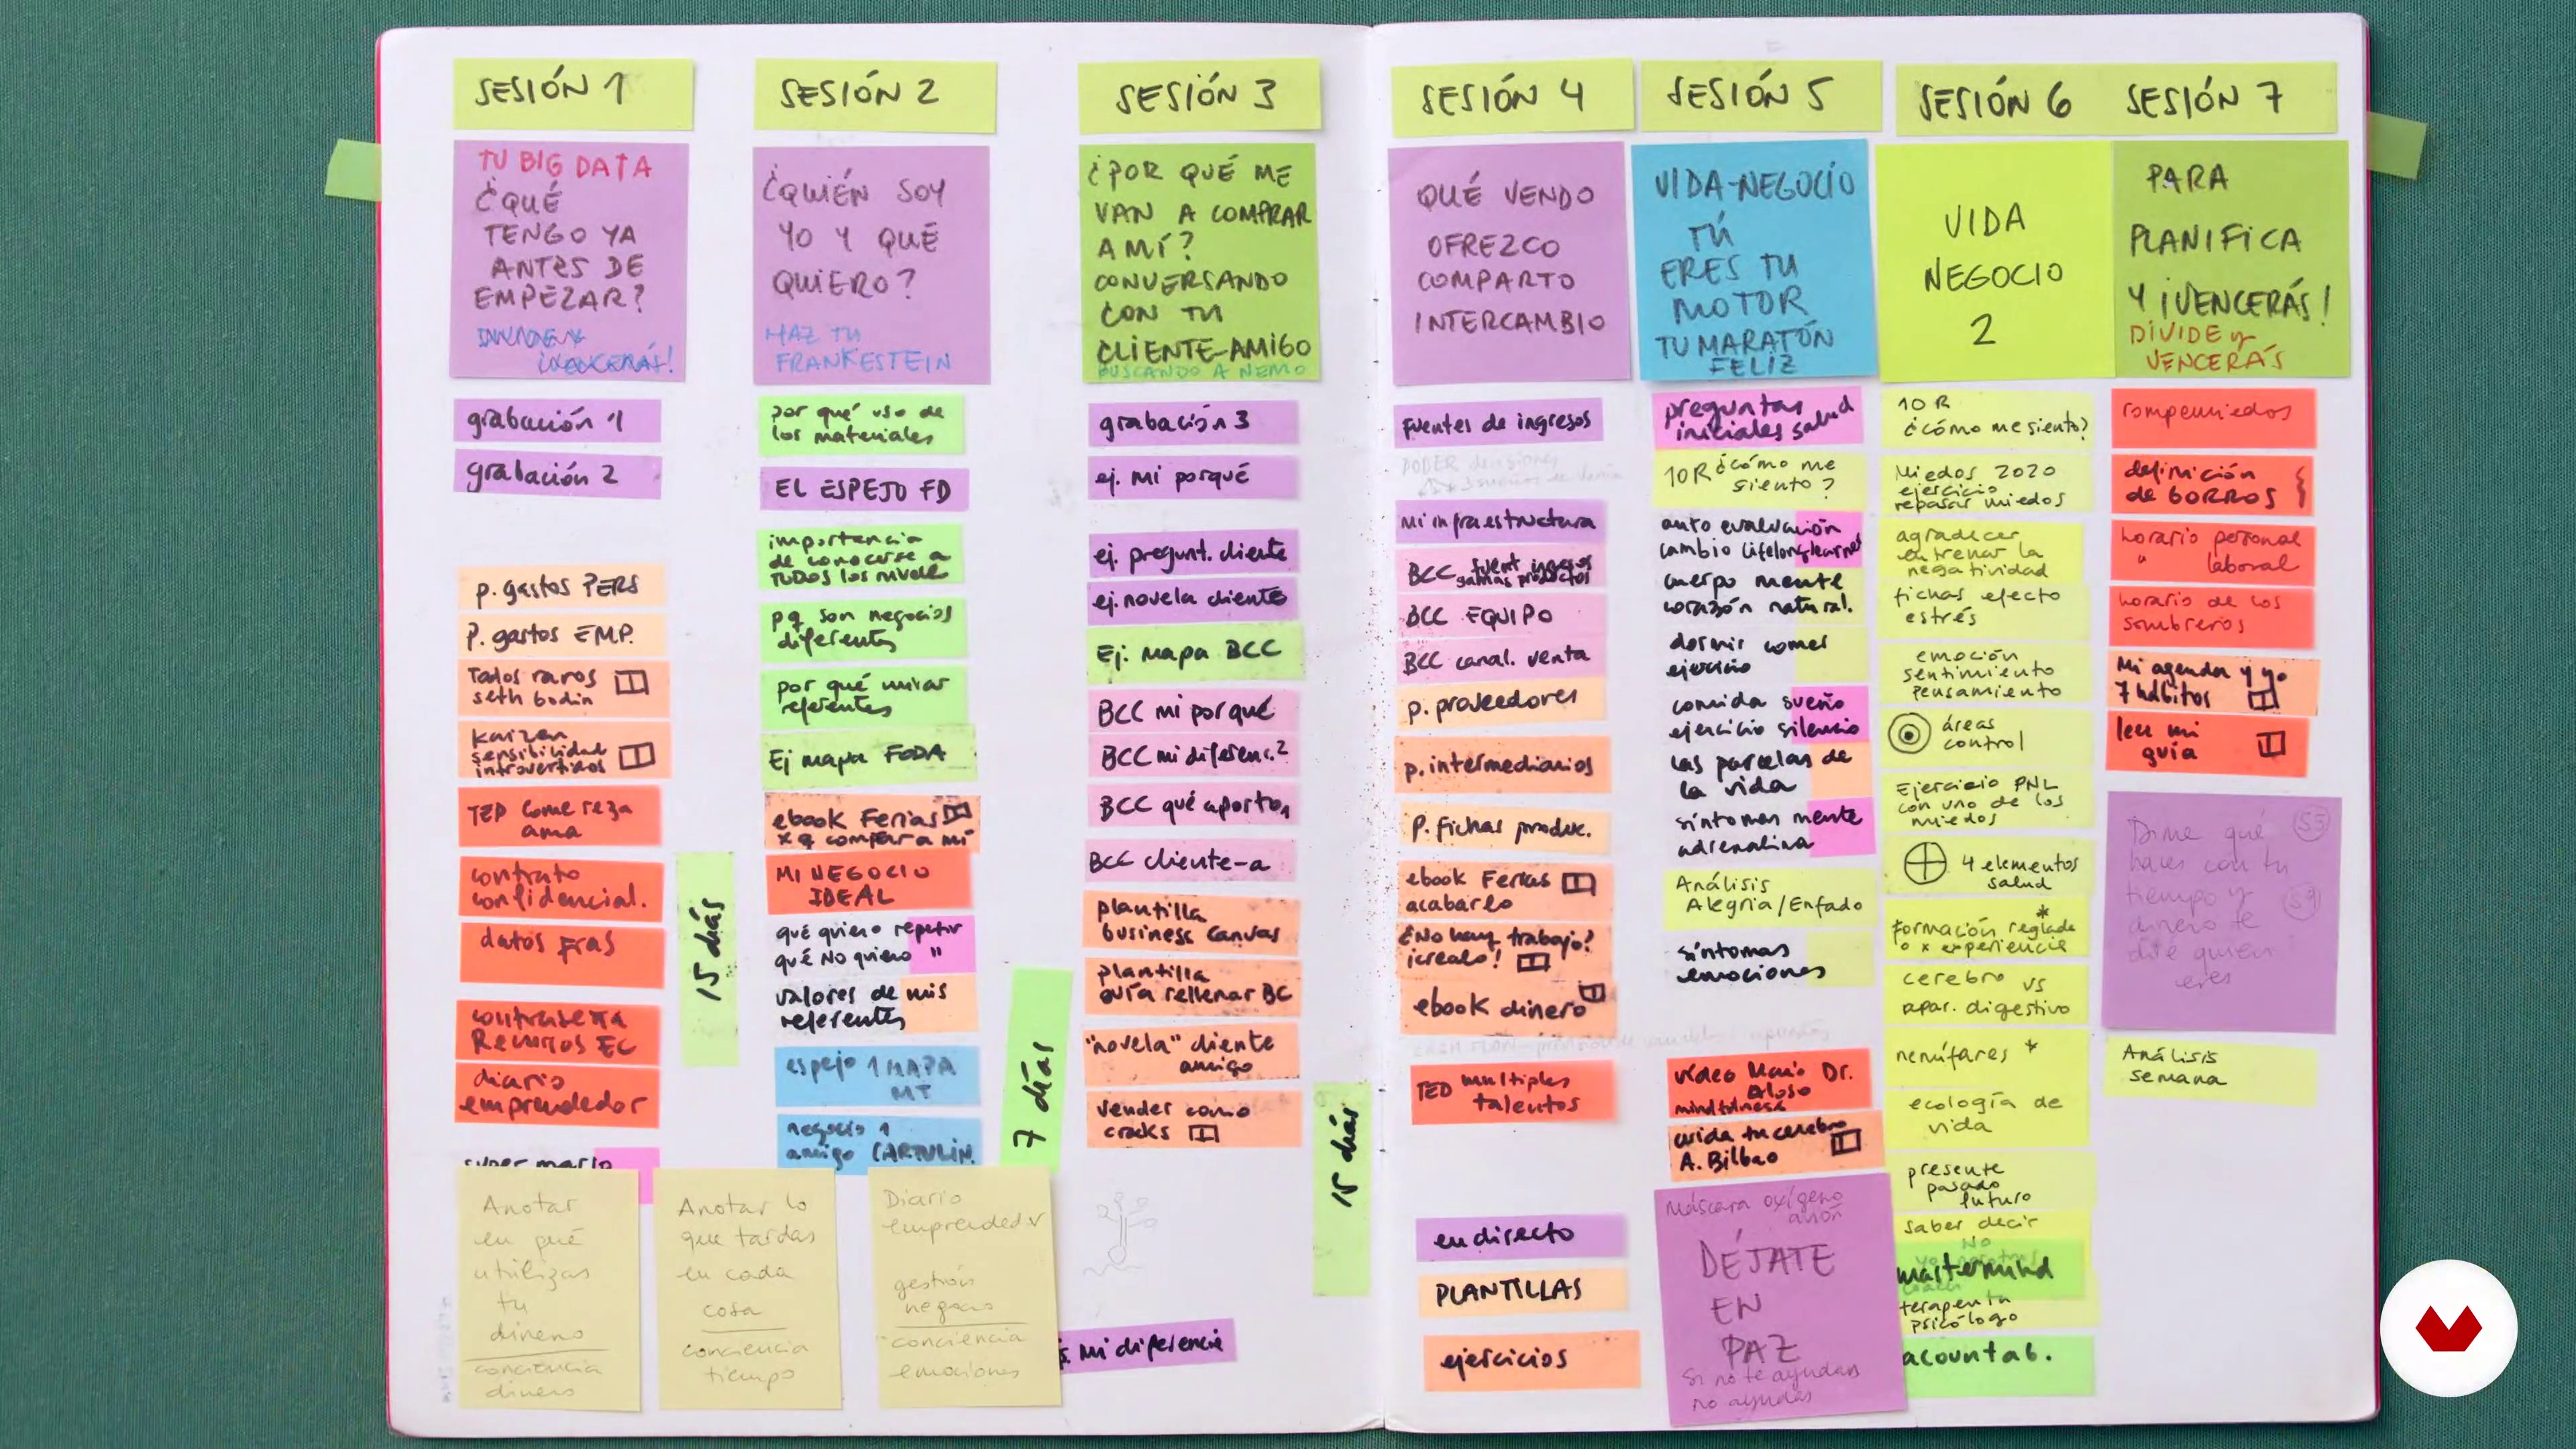 SESIÓN 1
TU BIG DATA
¿QUÉ
TENGO YA
ANTES DE
EMPEZAR?
¡VENCERÁS!
grabación 1
grabación 2
p. gastos PERS
P. gastos EMP.
Todos raros
seth Godin
Kaizen
sensibilidad
introvertidos
TED come reza
ama
contrato
confidencial.
datos fras
contraseña
Recursos EC
diario
emprendedor
super mario
Anotar
en qué
utilizas
tu
dinero
conciencia
dinero
15 días
Anotar lo
que tardas
en cada
cosa
conciencia
tiempo
SESIÓN 2
¿QUIÉN SOY
YO Y QUÉ
QUIERO?
HAZ TU
FRANKESTEIN
por qué uso de
los materiales
EL ESPEJO FD
importancia
de conocerse a
TODOS los nivele
pq son negocios
diferentes
por qué mirar
referentes
Ej mapa FODA
ebook Ferias
x q comprar a mí
MI NEGOCIO
IDEAL
qué quiero repetir
qué NO quiero "
valores de mis
referentes
espejo 1 MAPA
MT
negocio 1
amigo CARTULIN.
Diario
emprendedor
gestión
negocio
conciencia
emociones
7 días
SESIÓN 3
¿POR QUÉ ME
VAN A COMPRAR
A MÍ?
CONVERSANDO
CON TU
CLIENTE-AMIGO
BUSCANDO A NEMO
grabación 3
ej. mi porqué
ej. pregunt. cliente
ej. novela cliente
Ej. mapa BCC
BCC mi porqué
BCC mi diferenc.?
BCC qué aporto
BCC cliente-a
plantilla
business canvas
plantilla
guía rellenar BC
"novela" cliente
amigo
vender como
cracks
mi diferencia
15 días
SESIÓN 4
QUÉ VENDO
OFREZCO
COMPARTO
INTERCAMBIO
Fuentes de ingresos
PODER decisiones
mi infraestructura
BCC fuent ingresos
gamas productos
BCC EQUIPO
BCC canal. venta
p. proveedores
p. intermediarios
P. fichas produc.
ebook Ferias
acabarlo
¿No hay trabajo?
¡créalo!
ebook dinero
TED multiples
talentos
en directo
PLANTILLAS
ejercicios
SESIÓN 5
VIDA-NEGOCIO
TÚ
ERES TU
MOTOR
TU MARATÓN
FELIZ
preguntas
iniciales salud
10R ¿cómo me
siento?
auto evaluación
cambio lifelonglearner
cuerpo mente
corazón natural.
dormir comer
ejercicio
comida sueño
ejercicio silencio
las parcelas de
la vida
síntomas mente
adrenalina
Análisis
Alegría/Enfado
síntomas
emociones
vídeo Mario Dr.
Aloso
mindfulness
cuida tu cerebro
A. Bilbao
Máscara oxígeno
avión
DÉJATE
EN
PAZ
Si no te ayudas
no ayudas
SESIÓN 6
VIDA
NEGOCIO
2
10 R
¿cómo me siento?
Miedos 2020
ejercicio
repasar miedos
agradecer
entrenar la
negatividad
fichas efecto
estrés
emoción
sentimiento
pensamiento
áreas
control
Ejercicio PNL
con uno de los
miedos
4 elementos
salud
formación reglada *
o x experiencia
cerebro vs
apar. digestivo
nenúfares *
ecología de
vida
presente
pasado
futuro
saber decir
No
mastermind
terapeuta
psicólogo
acountab.
SESIÓN 7
PARA
PLANIFICA
Y ¡VENCERÁS!
DIVIDE y
VENCERÁS
rompemiedos
definición
de GORROS
horario personal
" laboral
horario de los
sombreros
Mi agenda y yo
7 hábitos
leer mi
guía
Dime qué
haces con tu
tiempo y
dinero te
diré quien
eres
S5
S9
Análisis
semana